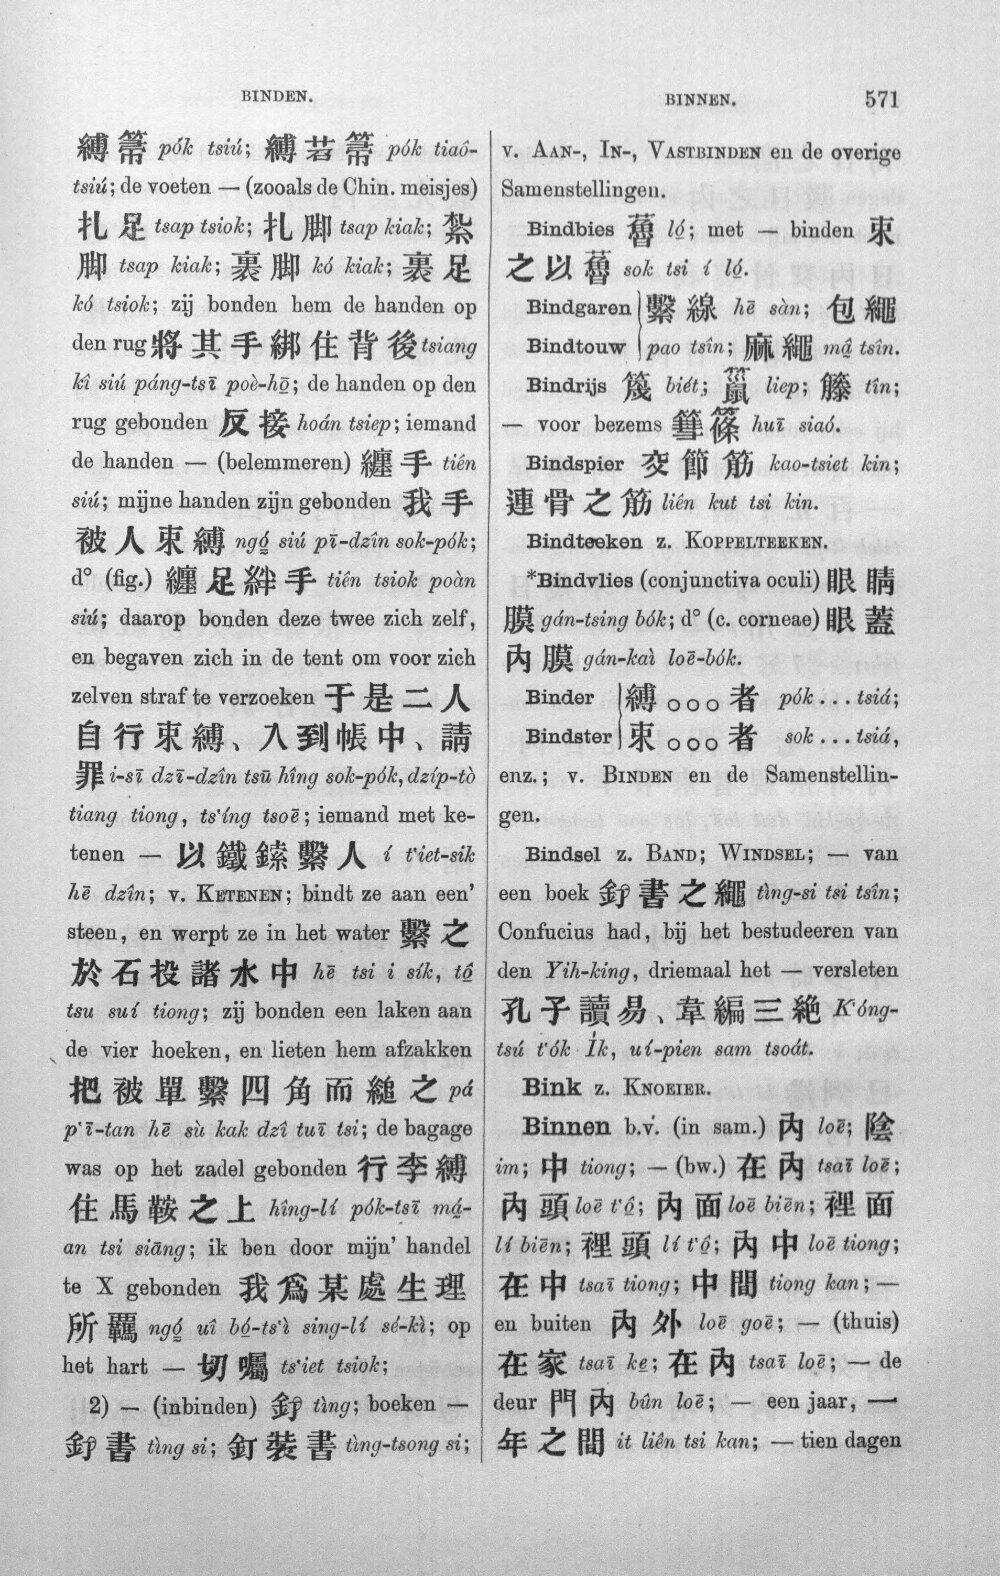 BINDEN.
BINNEN. 571
縛箒 pók tsiú; 縛苕箒 pók tiaô-
tsiú; de voeten — (zooals de Chin. meisjes)
扎足 tsap tsiok; 扎脚 tsap kiak; 紮
脚 tsap kiak; 裹脚 kó kiak; 裹足
kó tsiok; zij bonden hem de handen op
den rug 將其手綁住背後 tsiang
kî siú páng-tsī poè-hō; de handen op den
rug gebonden 反接 hoán tsiep; iemand
de handen — (belemmeren) 纏手 tiên
siú; mijne handen zijn gebonden 我手
被人束縛 ngó siú pī-dzîn sok-pók;
d° (fig.) 纏足絆手 tiên tsiok poàn
siú; daarop bonden deze twee zich zelf,
en begaven zich in de tent om voor zich
zelven straf te verzoeken 于是二人
自行束縛、入到帳中、請
罪 i-sī dzī-dzîn tsū hîng sok-pók, dzíp-tò
tiang tiong, ts‘íng tsoē; iemand met ke-
tenen — 以鐵鎍繫人 í t‘iet-sik
hē dzîn; v. KETENEN; bindt ze aan een’
steen, en werpt ze in het water 繫之
於石投諸水中 hē tsi i sík, tô
tsu suí tiong; zij bonden een laken aan
de vier hoeken, en lieten hem afzakken
把被單繫四角而縋之 pá
p‘ī-tan hē sù kak dzî tuī tsi; de bagage
was op het zadel gebonden 行李縛
住馬鞍之上 hîng-lí pók-tsī má-
an tsi siāng; ik ben door mijn’ handel
te X gebonden 我爲某處生理
所羈 ngó uî bó-ts‘ì sing-lí sé-kì; op
het hart — 切囑 ts‘iet tsiok;
2) — (inbinden) 釘 tìng; boeken —
釘書 tìng si; 釘裝書 tìng-tsong si;
v. AAN-, IN-, VASTBINDEN en de overige
Samenstellingen.
Bindbies 蓾 ló; met — binden 束
之以蓾 sok tsi í ló.
Bindgaren 繫線 hē sàn; 包繩
Bindtouw pao tsîn; 麻繩 mâ tsîn.
Bindrijs 篾 biét; 鼠 liep; 籐 tîn;
— voor bezems 篲篠 huī siaó.
Bindspier 交節筋 kao-tsiet kin;
連骨之筋 liên kut tsi kin.
Bindteeken z. KOPPELTEEKEN.
*Bindvlies (conjunctiva oculi) 眼睛
膜 gán-tsing bók; d° (c. corneae) 眼蓋
內膜 gán-kaì loē-bók.
Binder 縛○○○者 pók ... tsiá;
Bindster 束○○○者 sok ... tsiá,
enz.; v. BINDEN en de Samenstellin-
gen.
Bindsel z. BAND; WINDSEL; — van
een boek 釘書之繩 tìng-si tsi tsîn;
Confucius had, bij het bestudeeren van
den Yih-king, driemaal het — versleten
孔子讀易、韋編三絕 K‘óng-
tsú t‘ók Ík, uí-pien sam tsoát.
Bink z. KNOEIER.
Binnen b.v. (in sam.) 內 loē; 陰
im; 中 tiong; — (bw.) 在內 tsaī loē;
內頭 loē t‘ô; 內面 loē biēn; 裡面
lí biēn; 裡頭 lí t‘ô; 內中 loē tiong;
在中 tsaī tiong; 中間 tiong kan; —
en buiten 內外 loē goē; — (thuis)
在家 tsaī ke; 在內 tsaī loē; — de
deur 門內 bûn loē; — een jaar, 一
年之間 it liên tsi kan; — tien dagen